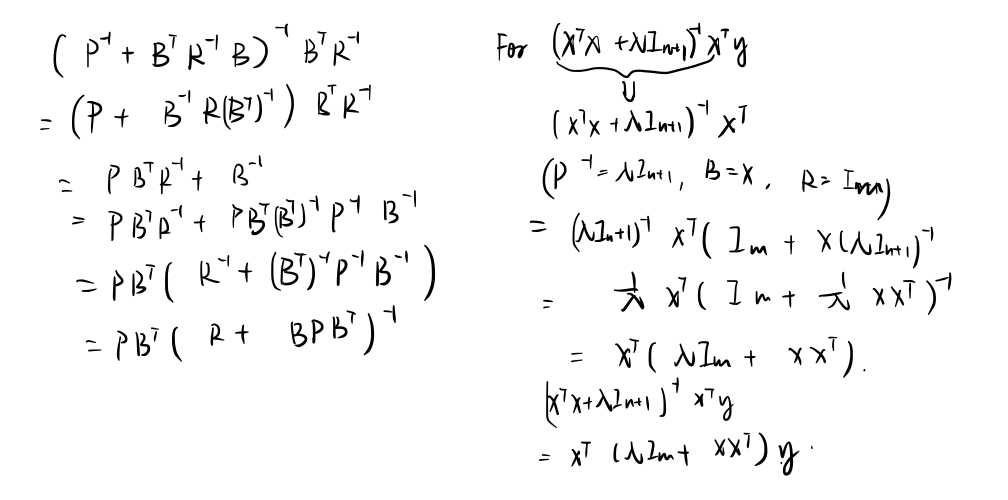 (P⁻¹ + BᵀR⁻¹B)⁻¹ BᵀR⁻¹
= (P + B⁻¹R(Bᵀ)⁻¹) BᵀR⁻¹
= PBᵀR⁻¹ + B⁻¹
= PBᵀR⁻¹ + PBᵀ(Bᵀ)⁻¹P⁻¹B⁻¹
= PBᵀ(R⁻¹ + (Bᵀ)⁻¹P⁻¹B⁻¹)
= PBᵀ(R + BPBᵀ)⁻¹
For (XᵀX + λIₙ₊₁)⁻¹Xᵀy
(XᵀX + λIₙ₊₁)⁻¹Xᵀ
(P⁻¹ = λIₙ₊₁, B = X, R = Iₘₘ)
= (λIₙ₊₁)⁻¹ Xᵀ(Iₘ + X(λIₙ₊₁)⁻¹
= 1/λ Xᵀ(Iₘ + 1/λ XXᵀ)⁻¹
= Xᵀ(λIₘ + XXᵀ).
(XᵀX + λIₙ₊₁)⁻¹Xᵀy
= Xᵀ(λIₘ + XXᵀ)y.